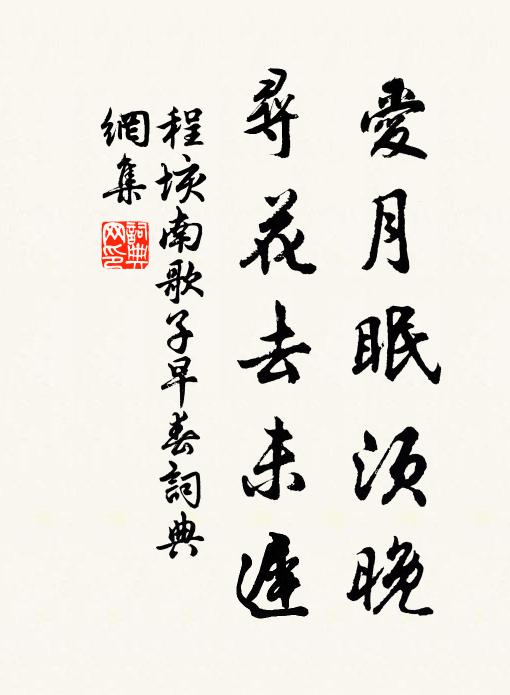 愛月眠須晚
尋花去未遲
程垓南歌子早春詞典
網集
詞典
网印